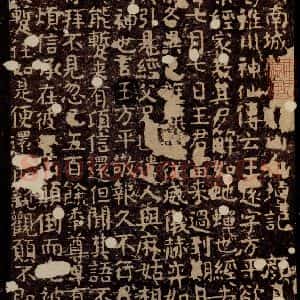 南城山仙壇記 顏真
稚川神仙傳云王遠字方平欲
經家教其尸解如蛇蟬也經去
七月七日王君當來過到期日
各異色旌威儀赫奕如
引見經父兄因遣人與麻姑相
神也言王方平敬報久不行民
能暫來有頃信還但聞其語不
拜不見忽已五百餘年尊卑有
煩信承在彼顛倒而先被
暫往如是便還親覲願不即